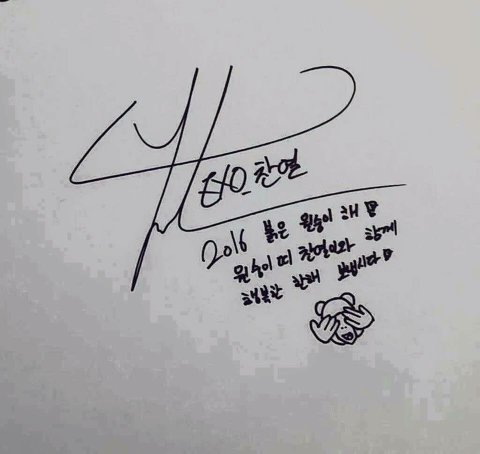 EXO_찬열
2016 붉은 원숭이 해
원숭이 띠 찬열이와 함께
행복한 한해 보냅시다